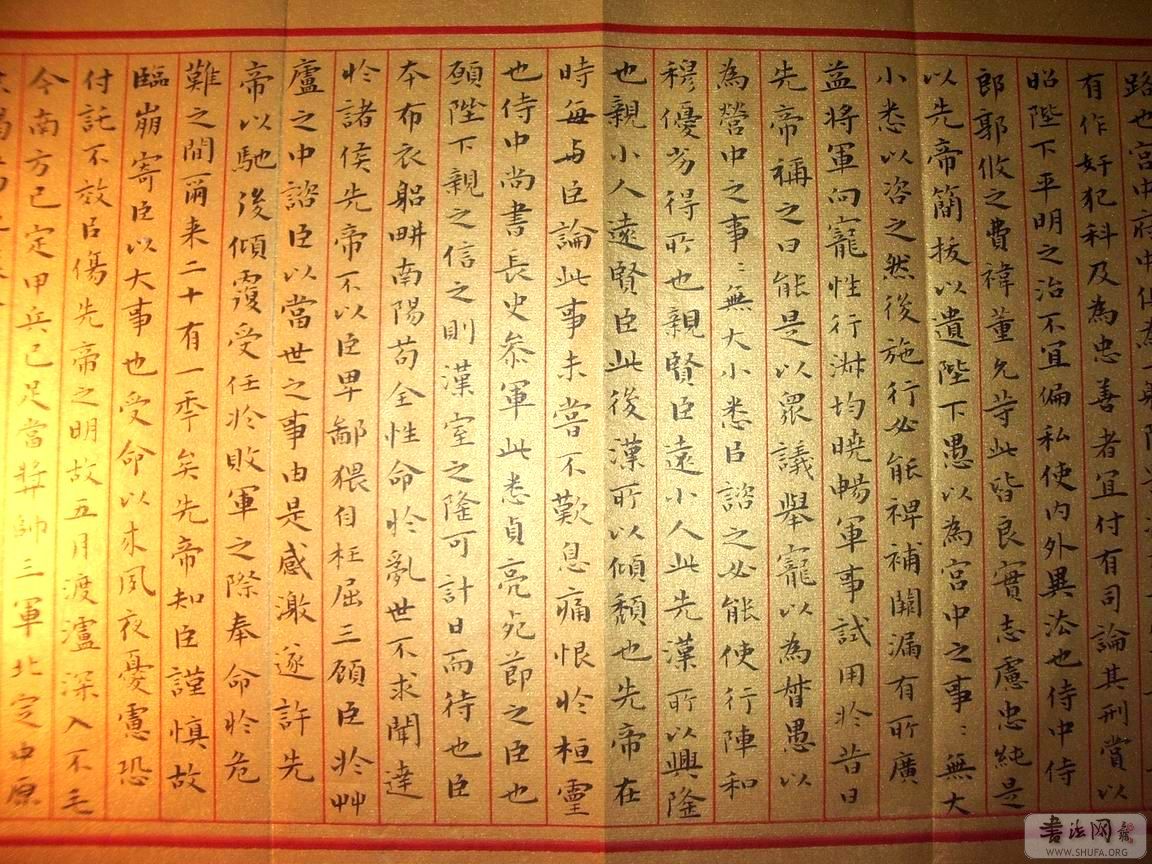 路也宮中府中
有作奸犯科及為忠善者宜付有司論其刑賞以
昭陛下平明之治不宜偏私使内外異法也侍中侍
郎郭攸之費禕董允等此皆良實志慮忠純是
以先帝簡拔以遺陛下愚以為宮中之事〻無大
小悉以咨之然後施行必能裨補闕漏有所廣
益將軍向寵性行淑均曉暢軍事試用於昔日
先帝稱之曰能是以眾議舉寵以為督愚以
為營中之事〻無大小悉以諮之必能使行陣和
穆優劣得所也親賢臣遠小人此先漢所以興隆
也親小人遠賢臣此後漢所以傾頹也先帝在
時每与臣論此事未嘗不歎息痛恨於桓靈
也侍中尚書長史參軍此悉貞亮死節之臣也
願陛下親之信之則漢室之隆可計日而待也臣
本布衣躬畊南陽苟全性命於亂世不求聞達
於諸侯先帝不以臣卑鄙猥自枉屈三顧臣於艸
廬之中諮臣以當世之事由是感激遂許先
帝以馳後傾覆受任於敗軍之際奉命於危
難之間爾来二十有一年矣先帝知臣謹慎故
臨崩寄臣以大事也受命以来夙夜憂慮恐
付託不效以傷先帝之明故五月渡瀘深入不毛
今南方已定甲兵已足當獎帥三軍北定中原
書法网
WWW.SHUFA.ORG